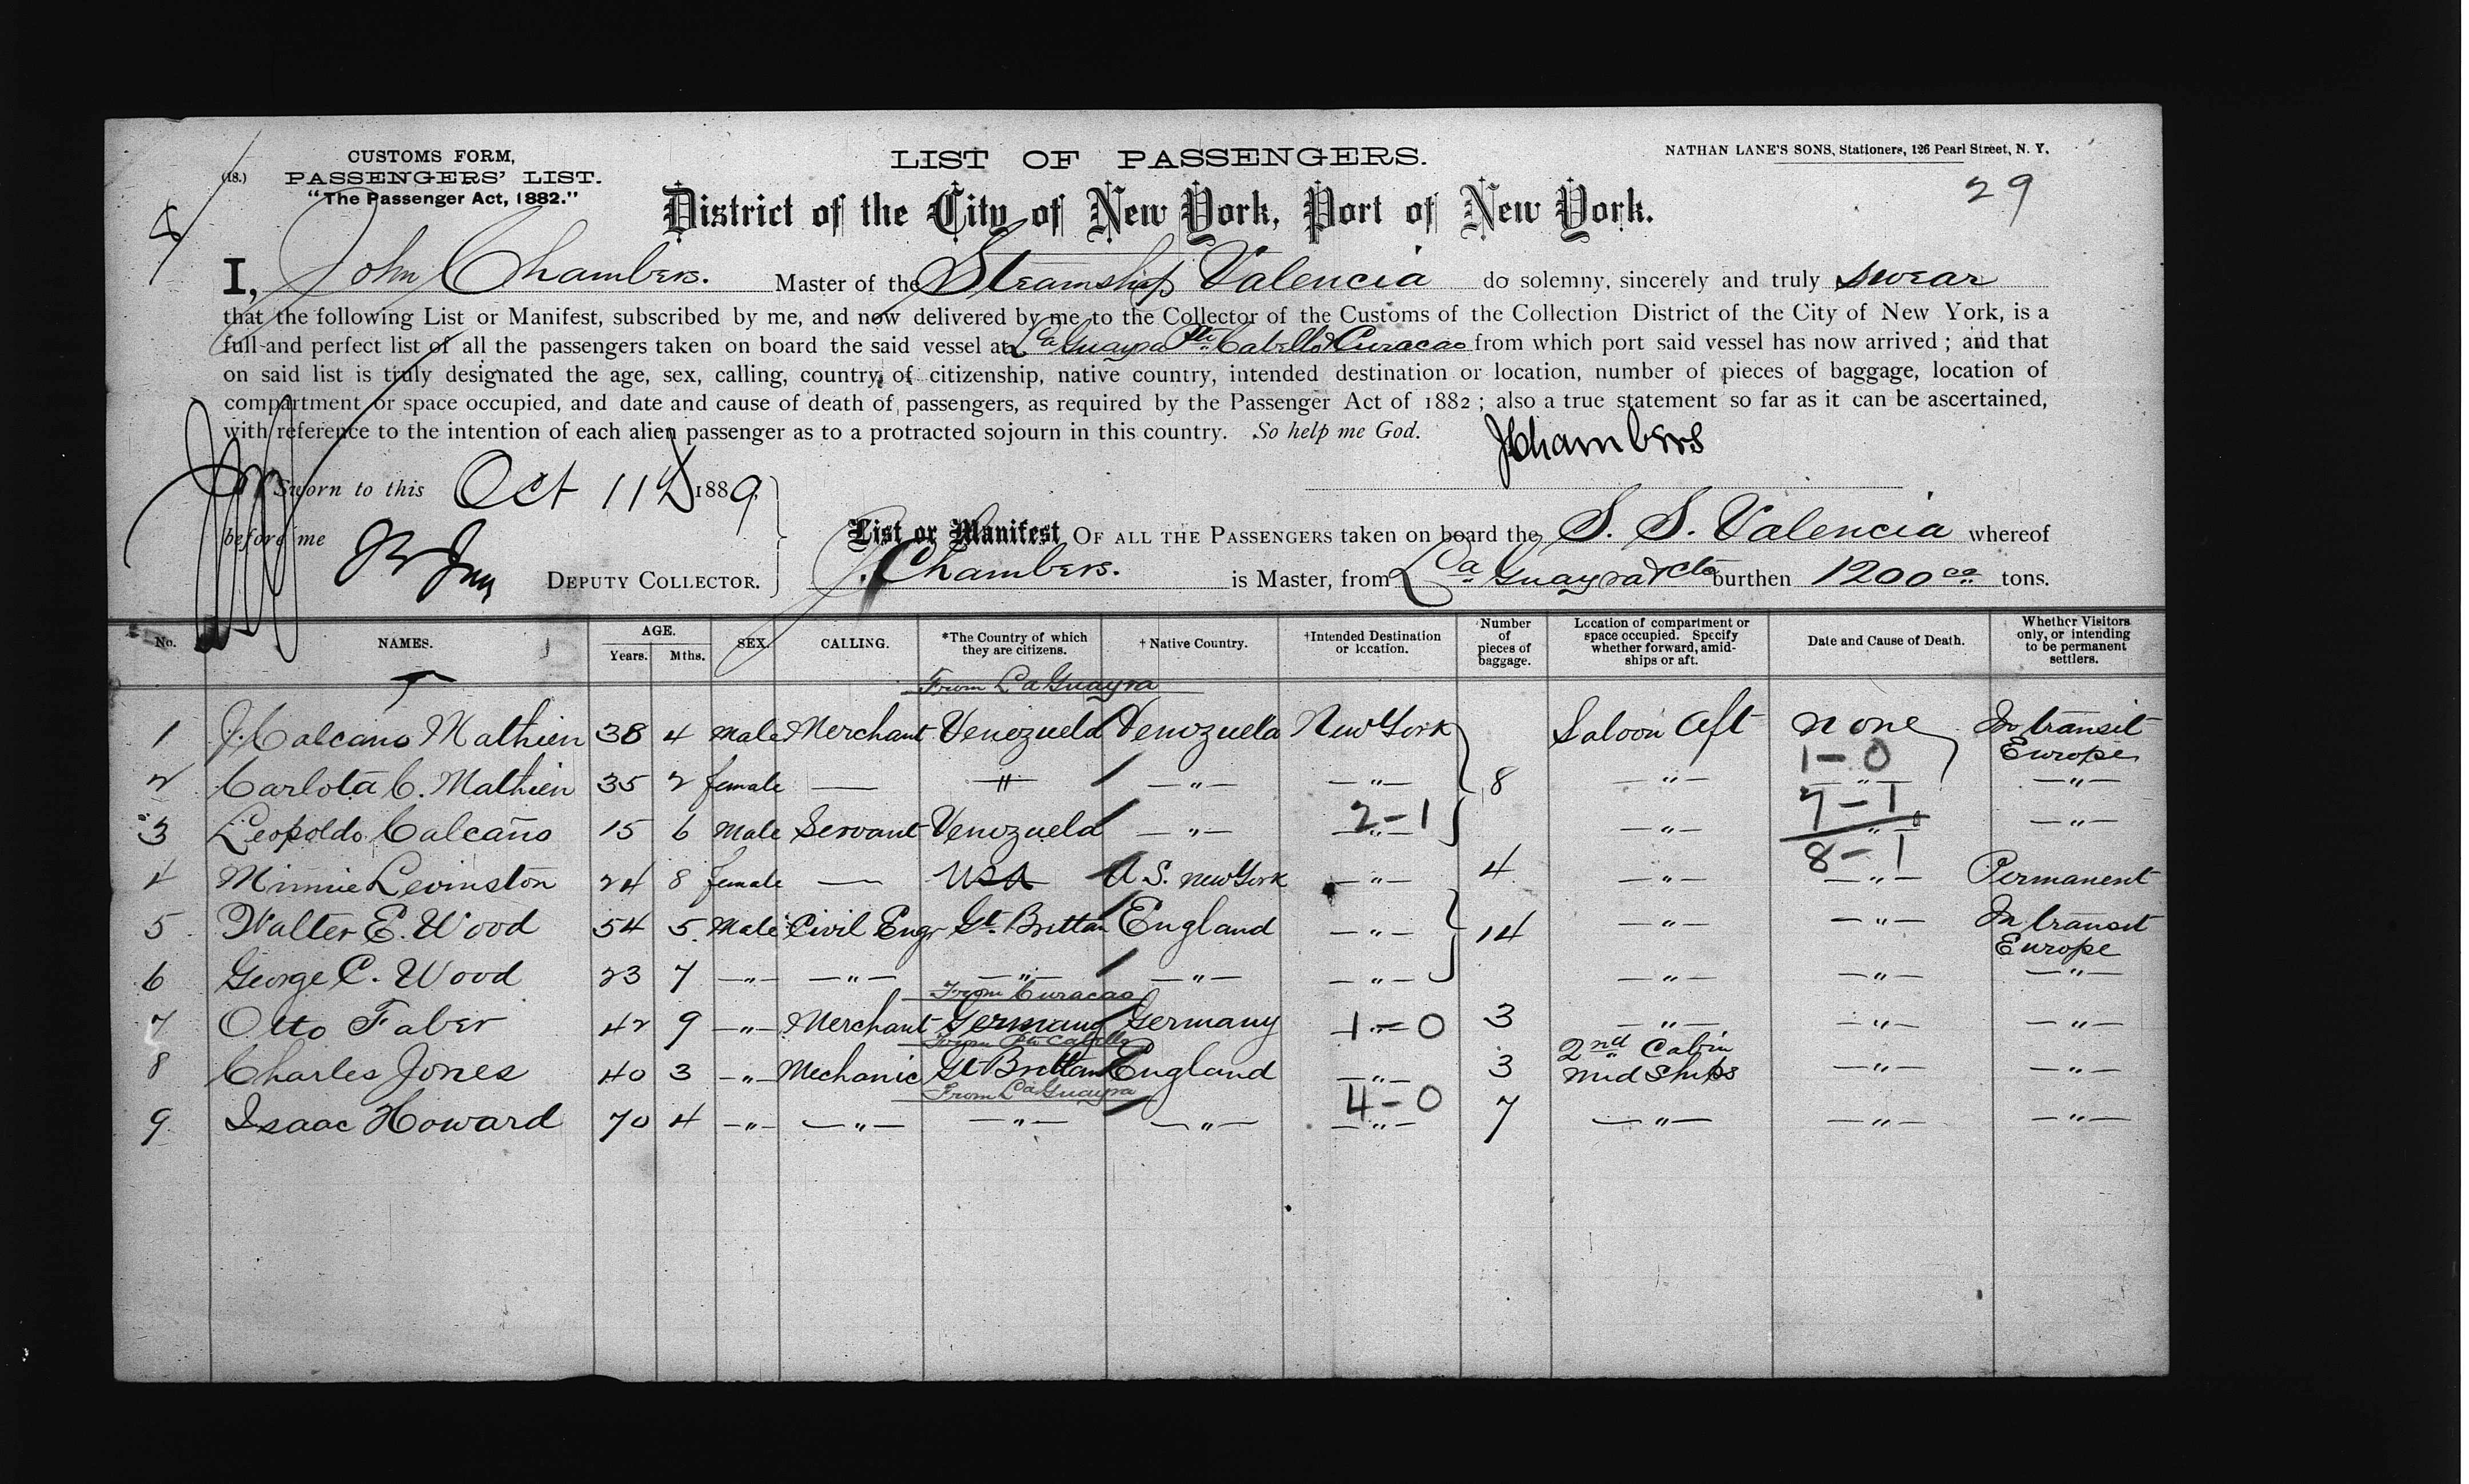 CUSTOMS FORM,
(18.) PASSENGERS' LIST.
"The Passenger Act, 1882."
LIST OF PASSENGERS.
NATHAN LANE'S SONS, Stationers, 126 Pearl Street, N. Y.
29
District of the City of New York, Port of New York.
I, John Chambers. Master of the Steamship Valencia do solemny, sincerely and truly swear
that the following List or Manifest, subscribed by me, and now delivered by me to the Collector of the Customs of the Collection District of the City of New York, is a
full and perfect list of all the passengers taken on board the said vessel at La Guayra Pto Cabello & Curacao from which port said vessel has now arrived; and that
on said list is truly designated the age, sex, calling, country of citizenship, native country, intended destination or location, number of pieces of baggage, location of
compartment or space occupied, and date and cause of death of passengers, as required by the Passenger Act of 1882; also a true statement so far as it can be ascertained,
with reference to the intention of each alien passenger as to a protracted sojourn in this country. So help me God.
JChambers
Sworn to this Oct 11th 1889
before me
DEPUTY COLLECTOR.
List or Manifest OF ALL THE PASSENGERS taken on board the S. S. Valencia whereof
J. Chambers. is Master, from La Guayra & cta burthen 1200 ca tons.
No. NAMES. AGE. Years. Mths. SEX. CALLING. *The Country of which they are citizens. † Native Country. †Intended Destination or location. Number of pieces of baggage. Location of compartment or space occupied. Specify whether forward, amidships or aft. Date and Cause of Death. Whether Visitors only, or intending to be permanent settlers.
From La Guayra
1 J. Calcano Mathien 38 4 Male Merchant Venezuela Venezuela New York Saloon Aft none In transit Europe
1-0
2 Carlota C. Mathien 35 2 female — " — " — — " — 8 — " — — " — — " —
7-1
3 Leopoldo Calcaño 15 6 Male Servant Venezuela — " — 2-1 — " — — " — — " — — " —
8-1
4 Minnie Levinston 24 8 female — USA U S. New York — " — 4 — " — — " — Permanent
5 Walter E. Wood 54 5 Male Civil Engr Gt. Brittan England — " — 14 — " — — " — In transit Europe
6 George C. Wood 23 7 — " — — " — — " — — " — — " — — " — — " — — " —
From Curacao
7 Otto Faber 42 9 — " — Merchant Germany Germany 1-0 3 — " — — " — — " —
From Pto Cabello
8 Charles Jones 40 3 — " — Mechanic Gt Brittan England — " — 3 2nd Cabin Mid Ships — " — — " —
From La Guayra
4-0
9 Isaac Howard 70 4 — " — — " — — " — — " — — " — 7 — " — — " — — " —